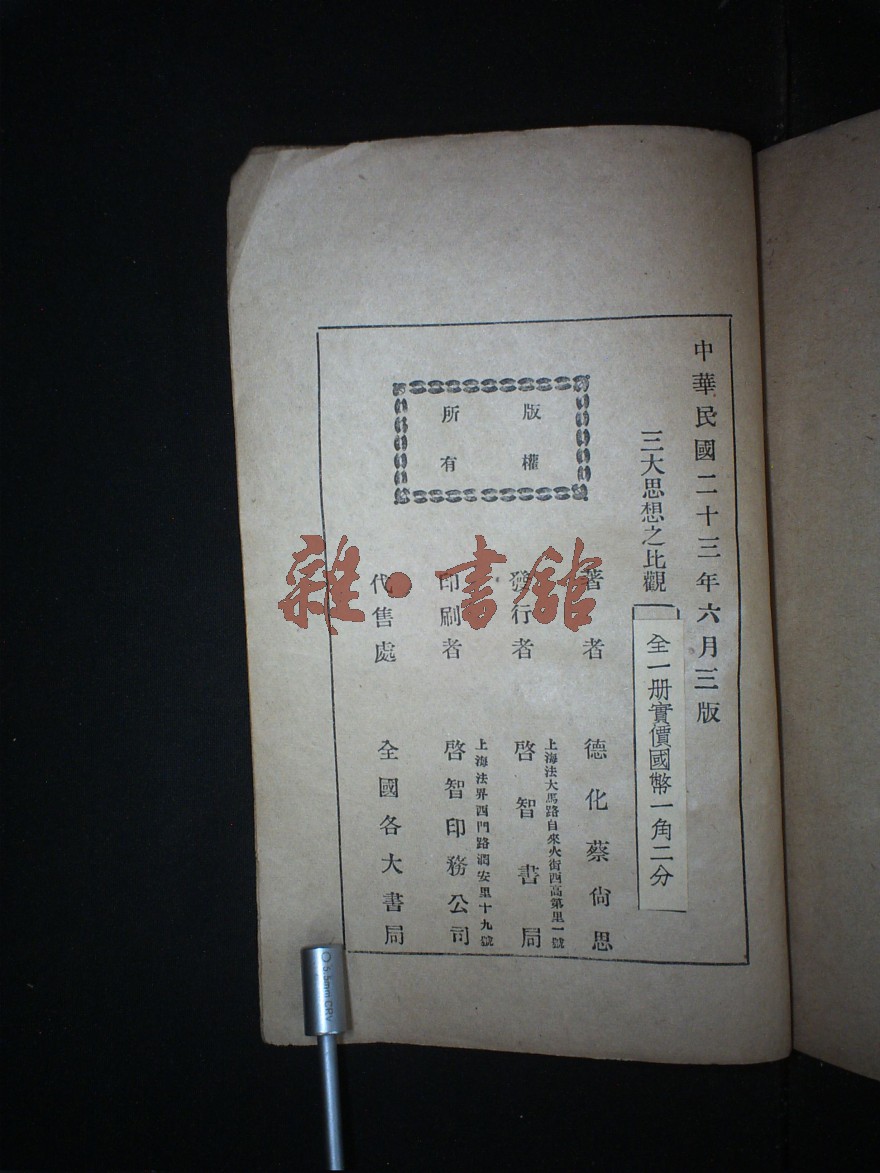 中華民國二十三年六月三版
三大思想之比觀
全一册實價國幣一角二分
著者 德化蔡尚思
發行者 啓智書局
上海法大馬路自來火街西高第里一號
印刷者 啓智印務公司
上海法界西門路潤安里十九號
代售處 全國各大書局
版權
所有
雜·書館
5.5mm CRV